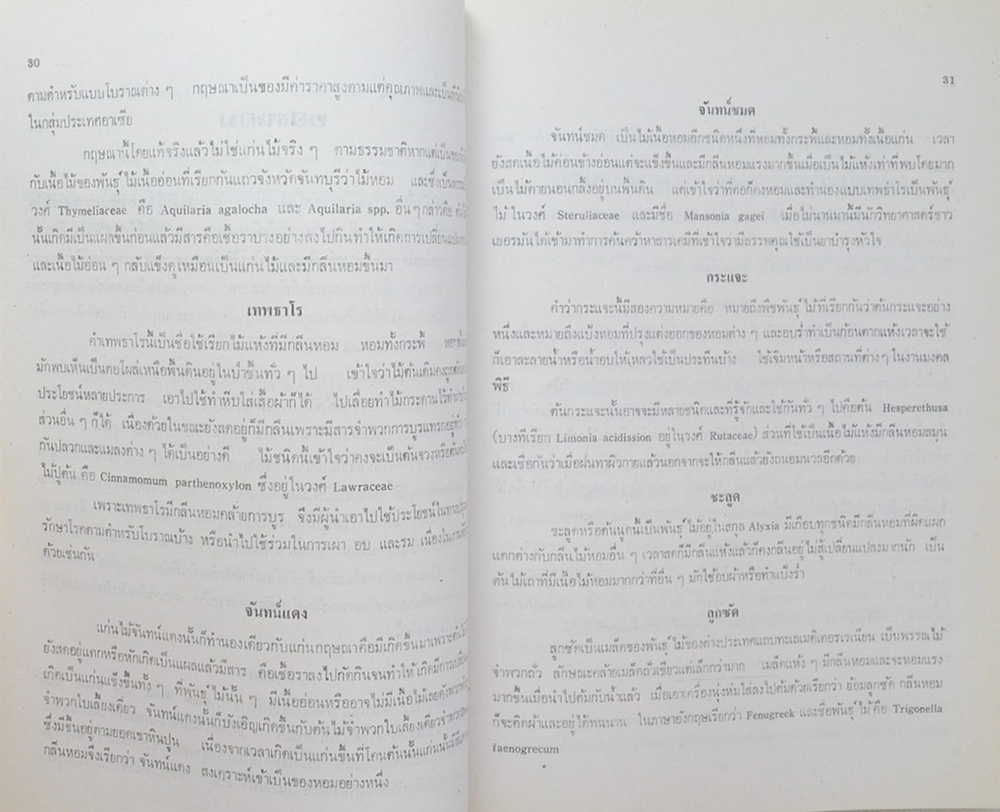 30
ตามตำหรับแบบโบราณต่าง ๆ กฤษณาเป็นของมีค่าราคาสูงตามแต่คุณภาพและเป็นที่
ในกลุ่มประเทศอาเซีย
กฤษณานี้โดยแท้จริงแล้วไม่ใช่แก่นไม้จริง ๆ ตามธรรมชาติหากแต่เป็น
กับเนื้อไม้ของพันธุ์ไม้เนื้ออ่อนที่เรียกกันแถวจังหวัดจันทบุรีว่าไม้หอม และซึ่งเป็น
วงศ์ Thymeliaceae คือ Aquilaria agalocha และ Aquilaria spp. อื่นๆกล่าวคือ
นั้นเกิดมีเป็นแผลขึ้นก่อนแล้วมีสารคือเชื้อราบางอย่างลงไปกินทำให้เกิดการเปลี่ยน
และเนื้อไม้อ่อน ๆ กลับแข็งดูเหมือนเป็นแก่นไม้และมีกลิ่นหอมขึ้นมา
เทพธาโร
คำเทพธาโรนี้เป็นชื่อใช้เรียกไม้แห้งที่มีกลิ่นหอม หอมทั้งกระพี้
มักพบเห็นเป็นตอโผล่เหนือพื้นดินอยู่ในป่าชื้นทั่ว ๆ ไป เข้าใจว่าไม้ต้นเดิมคง
ประโยชน์หลายประการ เอาไปใช้ทำหีบใส่เสื้อผ้าก็ได้ ไปเลื่อยทำไม้กระดานไว้
ส่วนอื่น ๆ ก็ได้ เนื่องด้วยในขณะยังสดอยู่ก็มีกลิ่นเพราะมีสารจำพวกการบูรแทรกอยู่
กันปลวกและแมลงต่าง ๆ ได้เป็นอย่างดี ไม้ชนิดนี้เข้าใจว่าคงจะเป็นต้นจวงหรือต้น
ไม้ปู่ต้น คือ Cinnamomum parthenoxylon ซึ่งอยู่ในวงศ์ Lawraceae
เพราะเทพธาโรมีกลิ่นหอมคล้ายการบูร จึงมีผู้นำเอาไปใช้ประโยชน์ในทาง
รักษาโรคตามตำหรับโบราณบ้าง หรือนำไปใช้ร่วมในการเผา อบ และรม เนื่องใน
ด้วยเช่นกัน
จันทน์แดง
แก่นไม้จันทน์แดงนั้นก็ทำนองเดียวกับแก่นกฤษณาคือมีเกิดขึ้นมาเพราะต้นไม้
ยังสดอยู่แตกหรือหักเกิดเป็นแผลแล้วมีสาร คือเชื้อราลงไปกัดกินจนทำให้เกิดมีการเปลี่ยน
เกิดเป็นแก่นแข็งขึ้นทั้ง ๆ ที่พันธุ์ไม้นั้น ๆ มีเนื้ออ่อนหรืออาจไม่มีเนื้อไม้เลย
จำพวกใบเลี้ยงเดียว จันทน์แดงนั้นก็บังเอิญเกิดขึ้นกับต้นไม้จำพวกใบเลี้ยงเดียว
ซึ่งมีขึ้นอยู่ตามยอดเขาหินปูน เนื่องจากเวลาเกิดเป็นแก่นขึ้นที่โคนต้นนั้นแก่นนั้น
กลิ่นหอมจึงเรียกว่า จันทน์แดง สงเคราะห์เข้าเป็นของหอมอย่างหนึ่ง
31
จันทน์ชมด
จันทน์ชมด เป็นไม้เนื้อหอมอีกชนิดหนึ่งที่หอมทั้งกระพี้และหอมทั้งเนื้อแก่น เวลา
ยังสดเนื้อไม้ค่อนข้างอ่อนแต่จะแข็งขึ้นและมีกลิ่นหอมแรงมากขึ้นเมื่อเป็นไม้แห้งเท่าที่พบโดยมาก
เป็นไม้ตายนอนกลิ้งอยู่บนพื้นดิน แต่เข้าใจว่าที่ตอก็คงหอมและทำนองแบบเทพธาโรเป็นพันธุ์
ไม้ในวงศ์ Steruliaceae และมีชื่อ Mansonia gagei เมื่อไม่นานมานี้มีนักวิทยาศาสตร์ชาว
เยอรมันได้เข้ามาทำการค้นคว้าหาสารเคมีที่เข้าใจว่ามีสรรพคุณใช้เป็นยาบำรุงหัวใจ
กระแจะ
คำว่ากระแจะนี้มีสองความหมายคือ หมายถึงพืชพันธุ์ไม้ที่เรียกกันว่าต้นกระแจะอย่าง
หนึ่งและหมายถึงแป้งหอมที่ปรุงแต่งออกของหอมต่าง ๆ และอบร่ำทำเป็นก้อนตากแห้งเวลาจะใช้
ก็เอาละลายน้ำหรือน้ำอบให้เหลวใช้เป็นประทิ่นบ้าง ใช้เจิมหน้าหรือสถานที่ต่างๆในงานมงคล
พิธี
ต้นกระแจะนั้นอาจจะมีหลายชนิดและที่รู้จักและใช้กันทั่ว ๆ ไปคือต้น Hesperethusa
(บางทีเรียก Limonia acidission อยู่ในวงศ์ Rutaceae) ส่วนที่ใช้เป็นเนื้อไม้แห้งมีกลิ่นหอมละมุน
และเชื่อกันว่าเมื่อฝนทาผิวกายแล้วนอกจากจะให้กลิ่นแล้วยังถนอมนวลอีกด้วย
ชะลูด
ชะลูดหรือต้นนูดนี้เป็นพันธุ์ไม้อยู่ในสกุล Alyxia มีเกือบทุกชนิดมีกลิ่นหอมที่ผิดแผก
แตกต่างกับกลิ่นไม้หอมอื่น ๆ เวลาสดก็มีกลิ่นแห้งแล้วก็คงกลิ่นอยู่ไม่สู้เปลี่ยนแปลงมากนัก เป็น
ต้นไม้เถาที่มีเนื้อไม้หอมมากกว่าที่อื่น ๆ มักใช้อบผ้าหรือทำแป้งร่ำ
ลูกซัด
ลูกซัดเป็นเมล็ดของพันธุ์ไม้ของต่างประเทศแถบทะเลเมดิเตอร์เรเนียน เป็นพรรณไม้
จำพวกถั่ว ลักษณะคล้ายเมล็ดถั่วเขียวแต่เล็กกว่ามาก เมล็ดแห้ง ๆ มีกลิ่นหอมและจะหอมแรง
มากขึ้นเมื่อนำไปต้มกับน้ำแล้ว เมื่อเอาเครื่องนุ่งห่มใส่ลงไปต้มด้วยเรียกว่า ย้อมลูกซัด กลิ่นหอม
ก็จะติดผ้าและอยู่ได้ทนนาน ในภาษาอังกฤษเรียกว่า Fenugreek และชื่อพันธุ์ไม้คือ Trigonella
faenogrecum